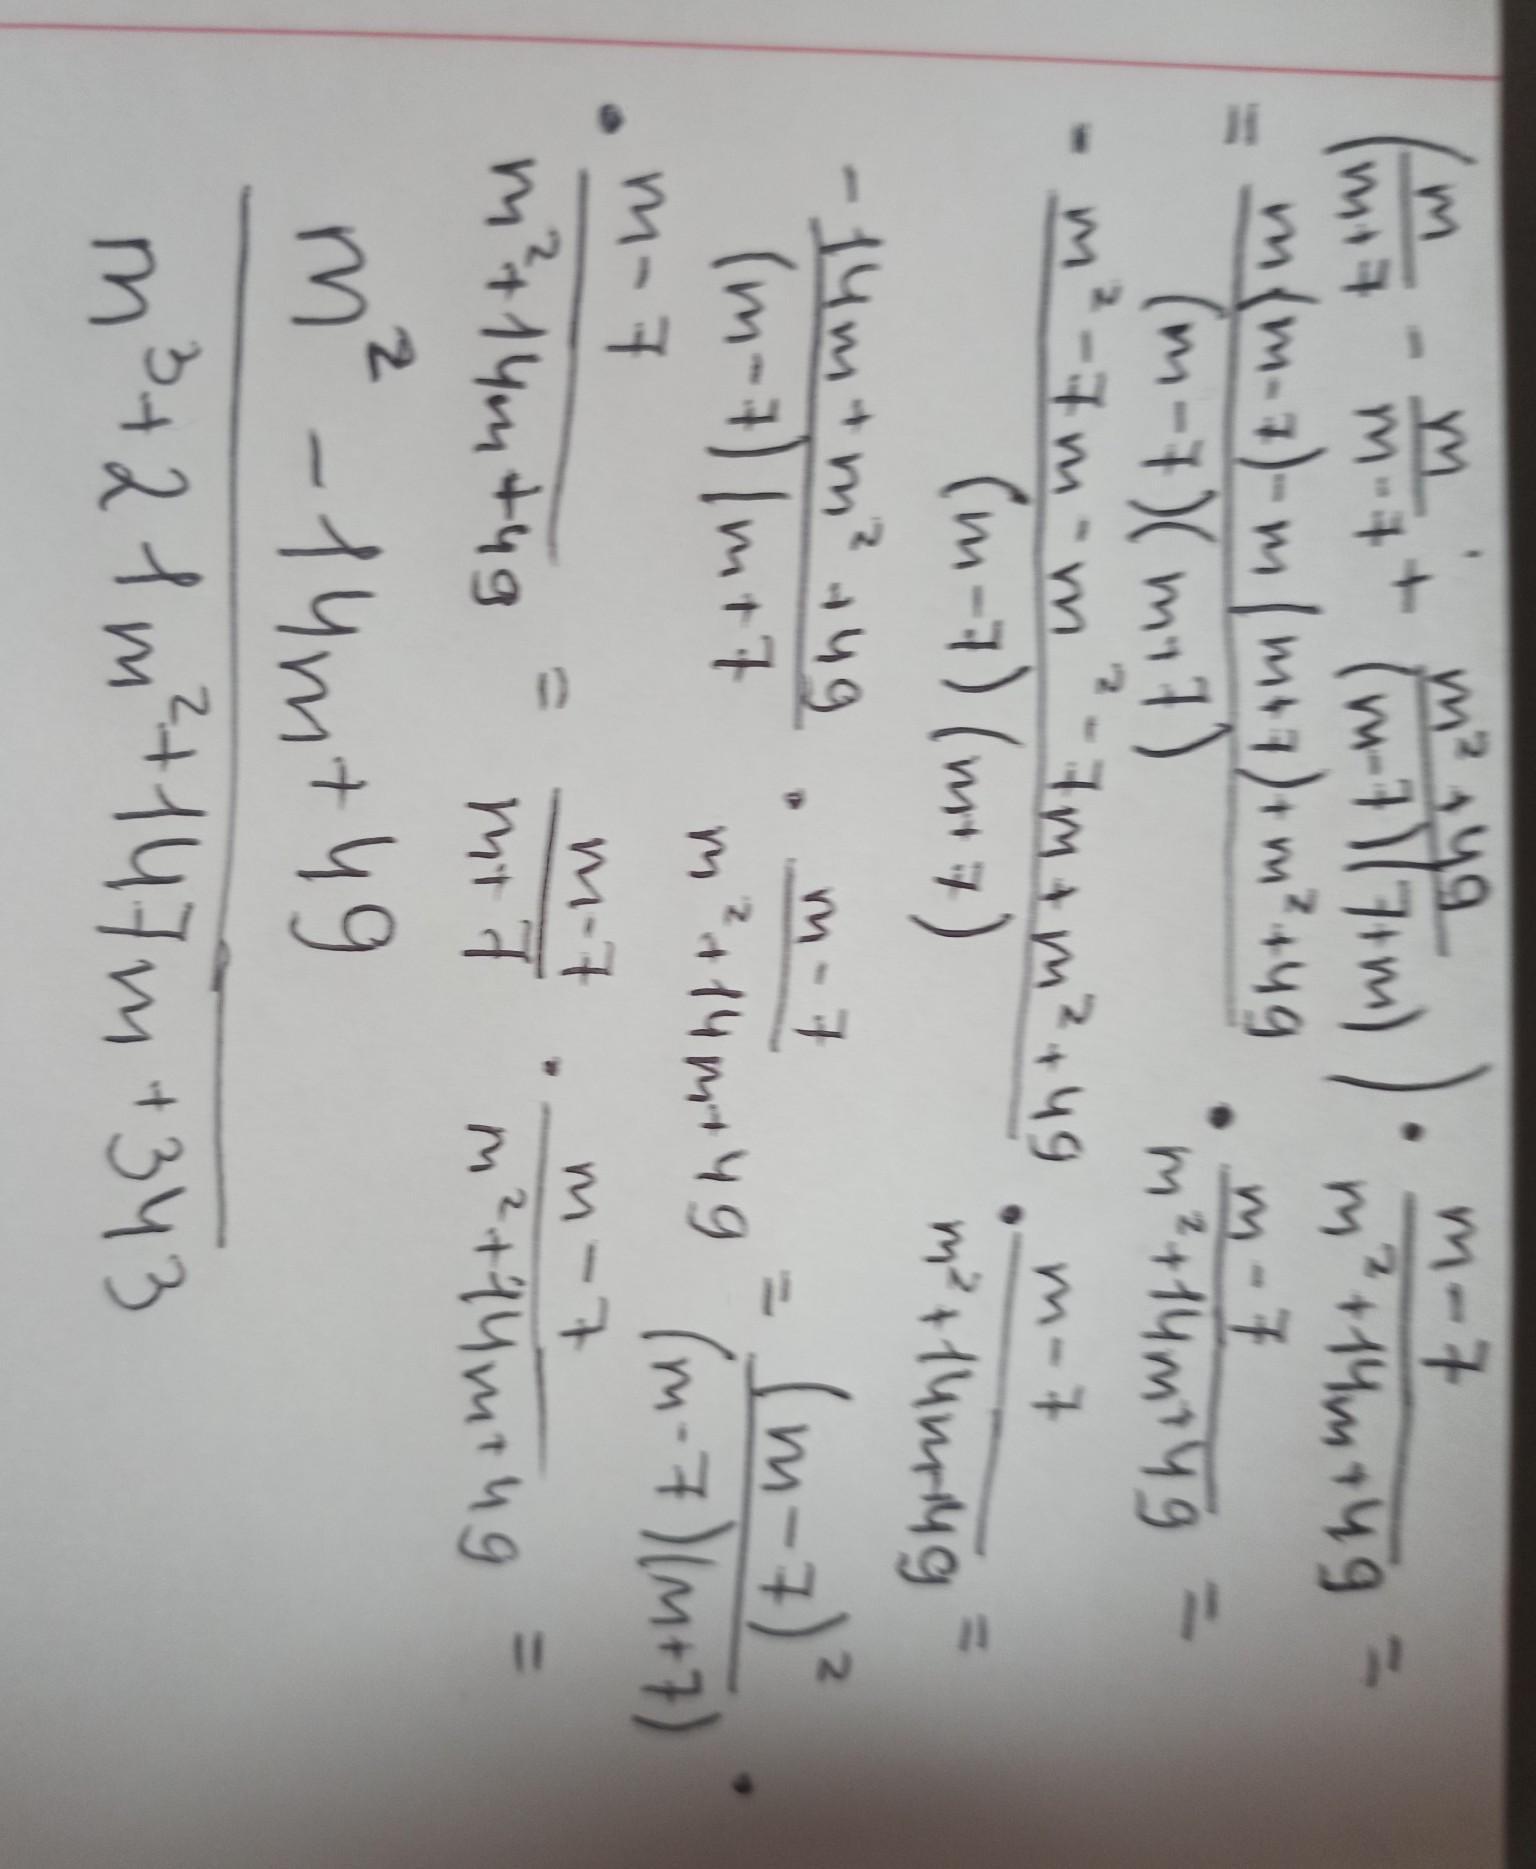 (m/(m+7) - m/(m-7) + (m²+49)/((m-7)(7+m))) · (m-7)/(m²+14m+49) =
= (m(m-7)-m(m+7)+m²+49)/((m-7)(m+7)) · (m-7)/(m²+14m+49) =
- (m²-7m-m²-7m+m²+49)/((m-7)(m+7)) · (m-7)/(m²+14m+49) =
(-14m+m²+49)/((m-7)(m+7) · (m-7)/(m²+14m+49) = (m-7)²/((m-7)(m+7)) ·
· (m-7)/(m²+14m+49) = (m-7)/(m+7) · (m-7)/(m²+14m+49) =
(m²-14m+49)/(m³+21m²+147m+343)